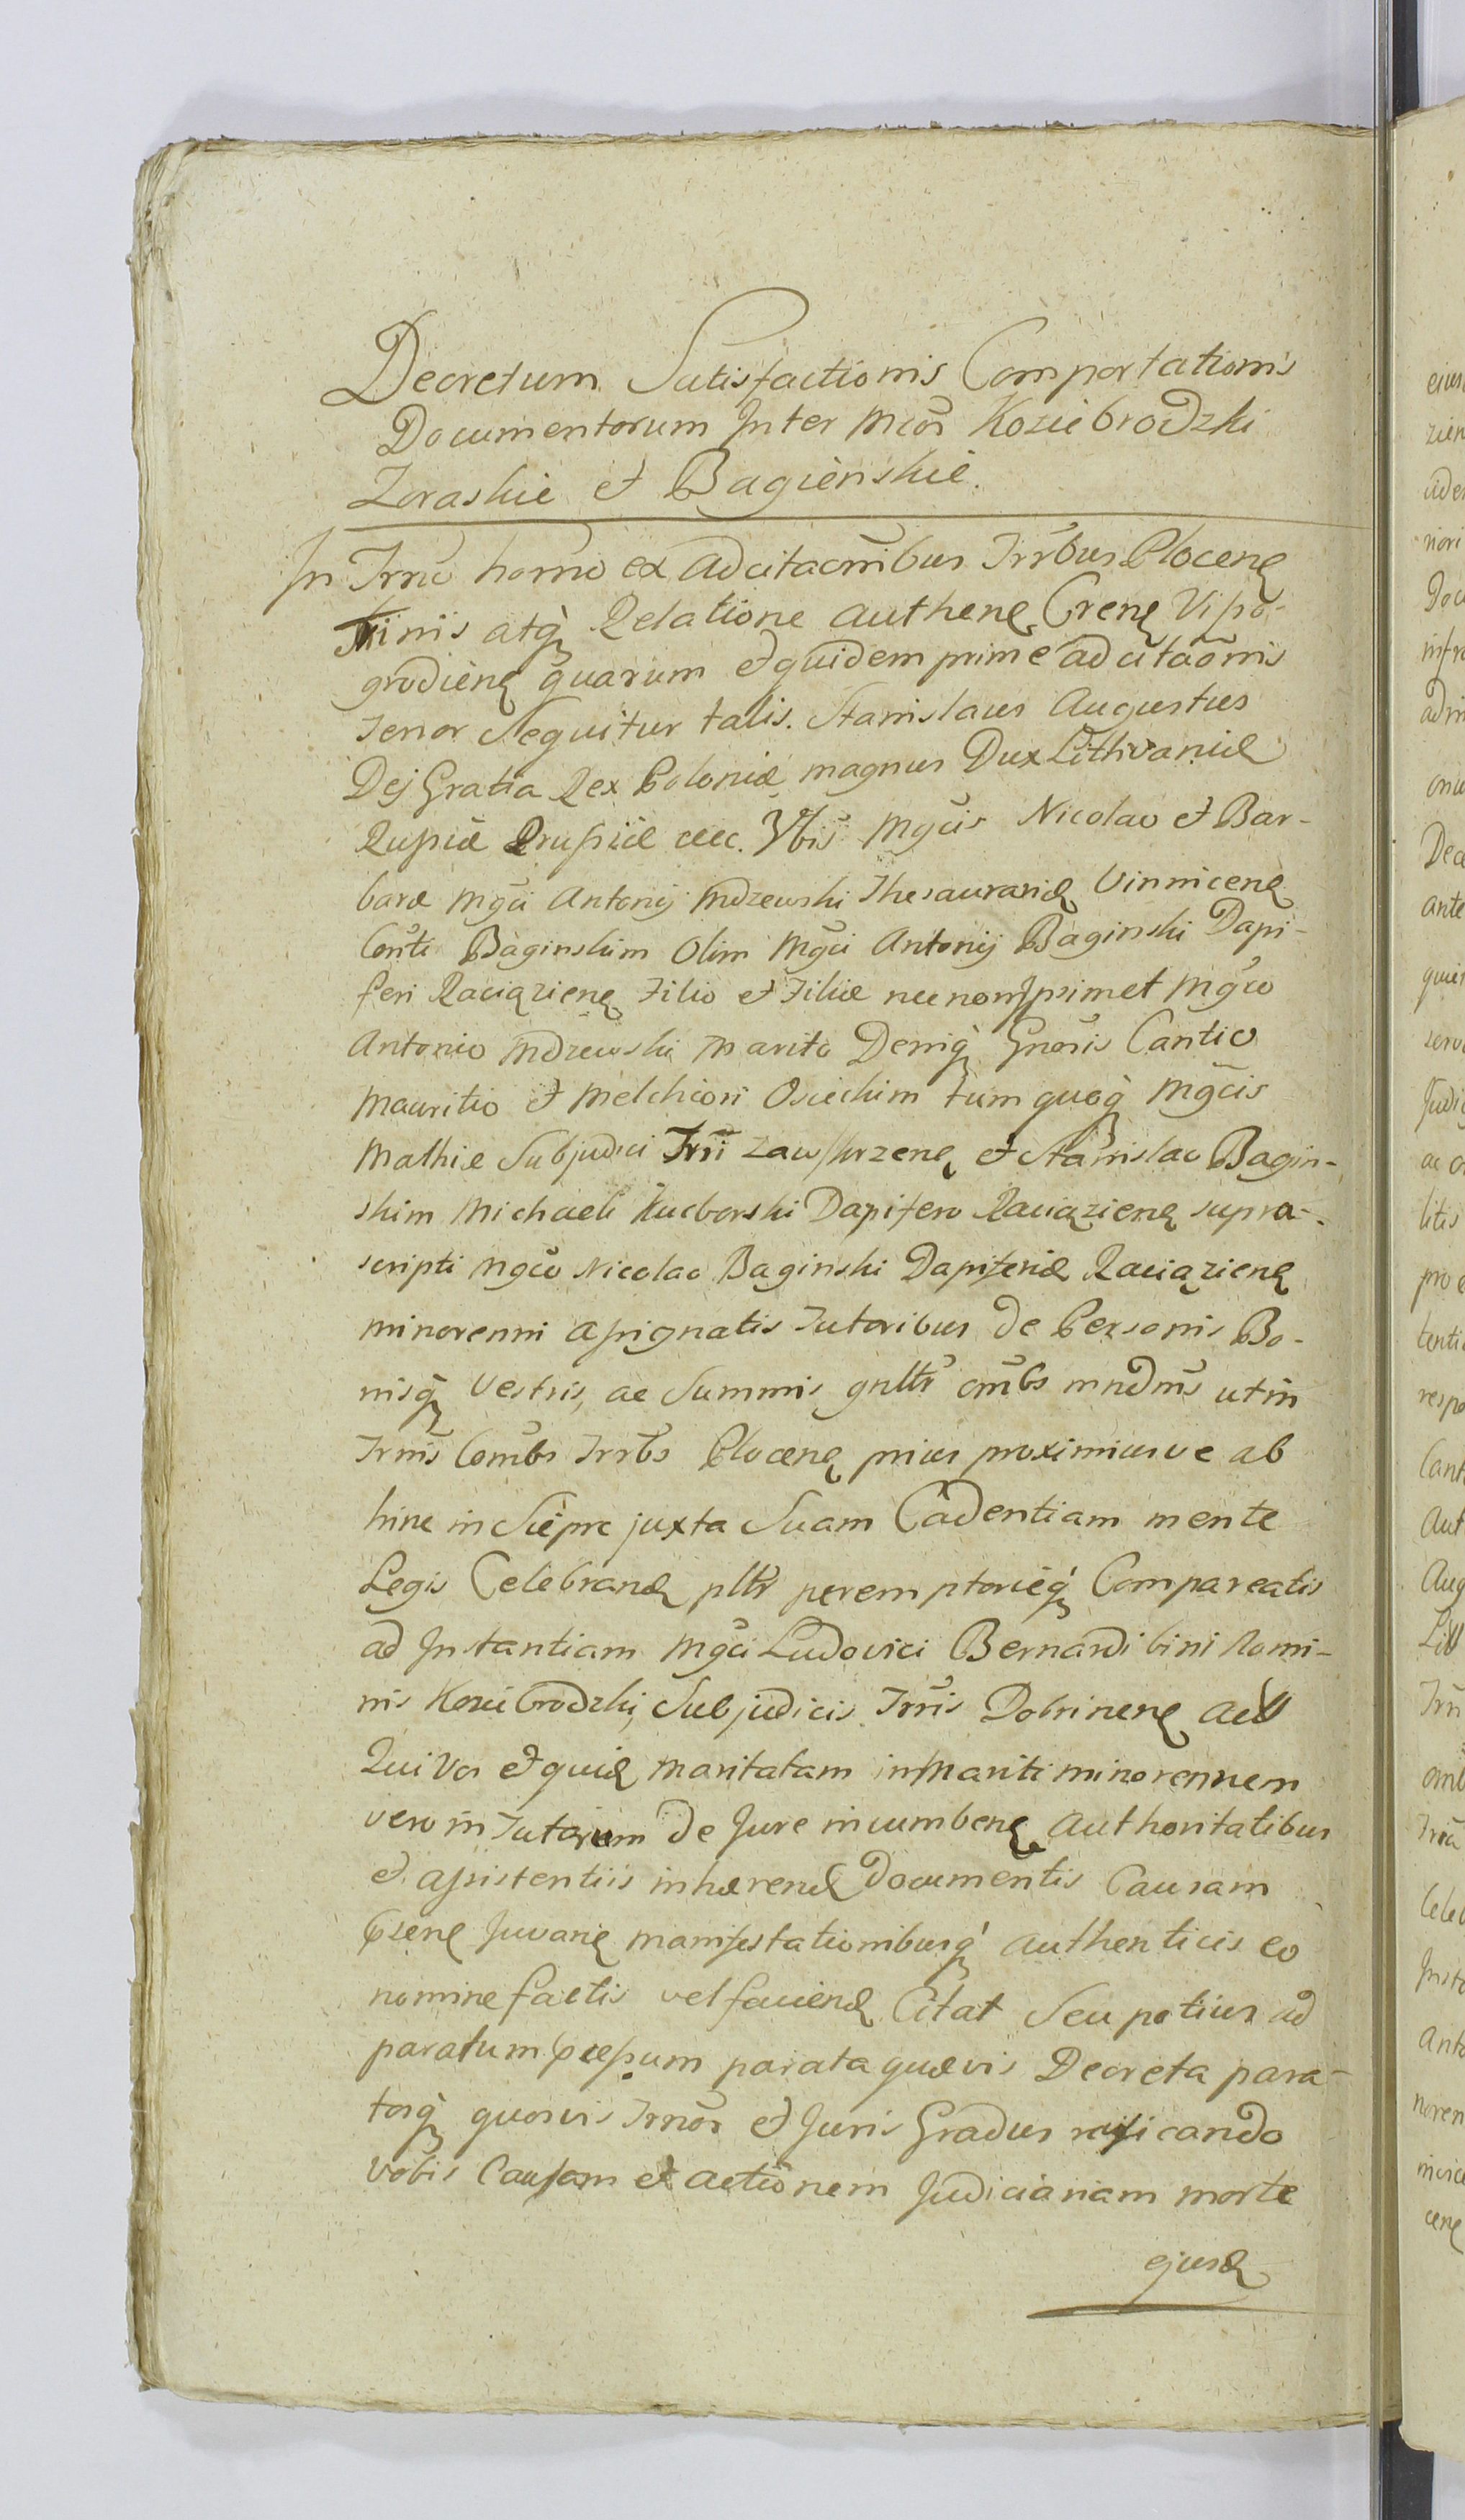 Decretum Satisfactionis Comportationis
Documentorum Inter Mcos Koziebrodzki
Zoraskie et Bagienskie.
In Trno horno ex Adcitaõnibus Trrbus Plocenę
Trinis atq̀ Relatione Authenę Crenę Viszo-
grodienę quarum et quidem prime adcitaõnis
Tenor Sequitur talis. Stanislaus Augustus
Dej Gratia Rex Poloniæ magnus Dux Lithvaniæ
Russiæ Prussiæ &c. Vbis Mgcis Nicolao et Bar-
baræ Mgci Antonij Mdzewski Thesaurariæ Vinnicenę
Conti Baginskim Olim Mgci Antonij Baginski Dapi-
feri Raciązienę Filio et Filiæ necnon Ipsimet Mgco
Antonio Mdzewski Marito Deniq̀ Gnosis Cantio
Mauritio et Melchiori Osiechim tum quoq̀ Mgcis
Mathiæ Subjudici Trrii Zawskrzenę et Stanislao Bagin-
skim Michaeli Kucborski Dapifero Raciązienę supra-
scripti Mgco Nicolao Baginski Dapiferidę Raciązienę
minorenni assignatis Tutoribus de Personis Bo-
nisq̀ Vestris, ac Summis gnltr ombs mndms ut in
Trnis Combs Trrbs Plocenę prius proximiusve ab
hinc in Sieprc juxta Suam Cadentiam mente
Legis Celebrandę pltr peremptorieq̀ Compareatis
ad Instantiam Mgci Ludovici Bernardi bini Nomi-
nis Koziebrodzki, Subjudicis Trris Dobrinenę Actt
Qui Vos et quidę maritatam in Mariti minorennem
vero in Tutorum de Jure incumbenę Authoritatibus
et assistentiis inhærendę Documentis Causam
Pzenę Juvanę manifestationibusq̀ authenticis eo
nomine factis vel faciendę Citat Seu potius ad
paratum Pcessum parata quævis Decreta para-
tosq̀ quosvis Trnor et Juris Gradus rassicando
Vobis Causam et actionem Judiciariam morte
ejusdę